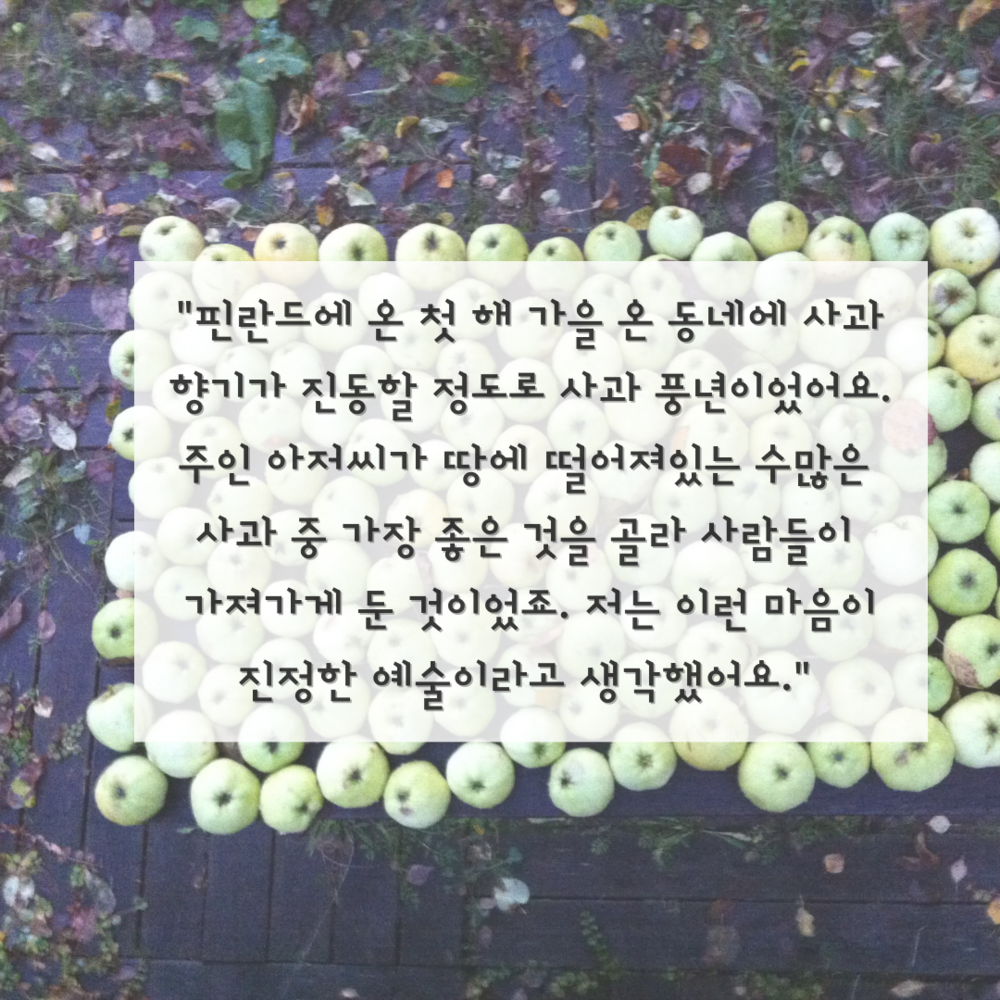 "핀란드에 온 첫 해 가을 온 동네에 사과
향기가 진동할 정도로 사과 풍년이었어요.
주인 아저씨가 땅에 떨어져있는 수많은
사과 중 가장 좋은 것을 골라 사람들이
가져가게 둔 것이었죠. 저는 이런 마음이
진정한 예술이라고 생각했어요."